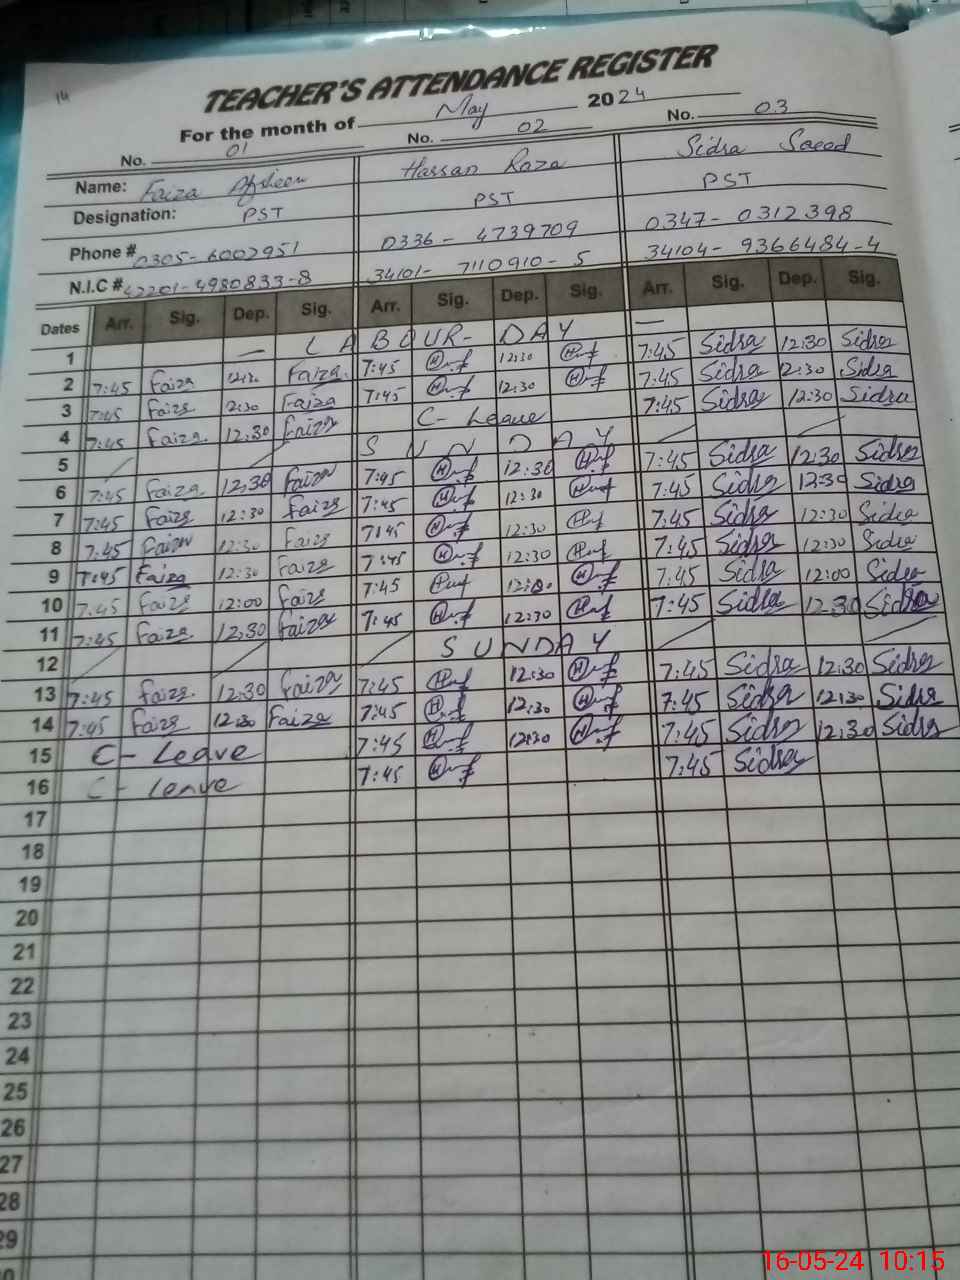 14
TEACHER'S ATTENDANCE REGISTER
For the month of May 2024
No. 01 No. 02 No. 03
Name: Faiza Afsheen Hassan Raza Sidra Saeed
Designation: PST PST PST
Phone # 0305-6002951 0336-4739709 0347-0312398
N.I.C # 42201-4980833-8 34101-7110910-5 34104-9366484-4
Dates Arr. Sig. Dep. Sig. Arr. Sig. Dep. Sig. Arr. Sig. Dep. Sig.
1 — LABOUR-DAY —
2 7:45 Faiza 12:30 Faiza 7:45 12:30 7:45 Sidra 12:30 Sidra
3 7:45 Faiza 12:30 Faiza 7:45 12:30 7:45 Sidra 12:30 Sidra
4 7:45 Faiza 12:30 Faiza C-Leave 7:45 Sidra 12:30 Sidra
5 SUNDAY
6 7:45 Faiza 12:30 Faiza 7:45 12:30 7:45 Sidra 12:30 Sidra
7 7:45 Faiza 12:30 Faiza 7:45 12:30 7:45 Sidra 12:30 Sidra
8 7:45 Faiza 12:30 Faiza 7:45 12:30 7:45 Sidra 12:30 Sidra
9 7:45 Faiza 12:30 Faiza 7:45 12:30 7:45 Sidra 12:30 Sidra
10 7:45 Faiza 12:00 Faiza 7:45 7:45 Sidra 12:00 Sidra
11 7:45 Faiza 12:30 Faiza 7:45 12:30 7:45 Sidra 12:30 Sidra
12 SUNDAY
13 7:45 Faiza 12:30 Faiza 7:45 12:30 7:45 Sidra 12:30 Sidra
14 7:45 Faiza 12:30 Faiza 7:45 12:30 7:45 Sidra 12:30 Sidra
15 C-Leave 7:45 12:30 7:45 Sidra 12:30 Sidra
16 C-leave 7:45 7:45 Sidra
17
18
19
20
21
22
23
24
25
26
27
28
29
30
16-05-24 10:15